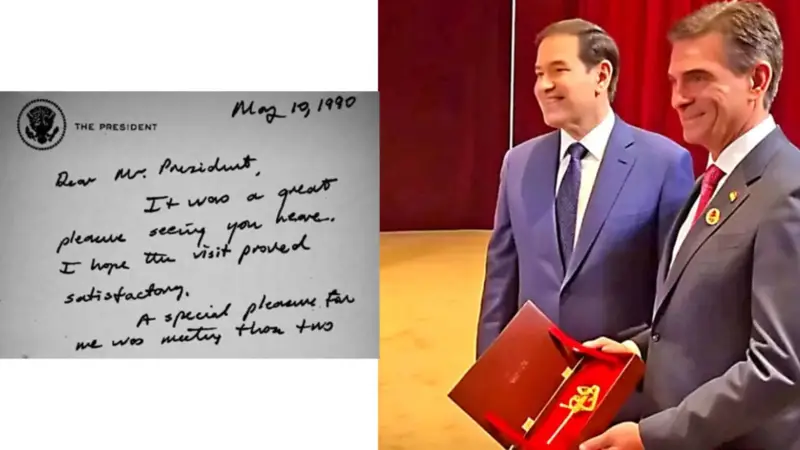 May 10, 1990
THE PRESIDENT
Dear Mr. President,
It was a great
pleasure seeing you here.
I hope the visit proved
satisfactory.
A special pleasure for
me was meeting those two